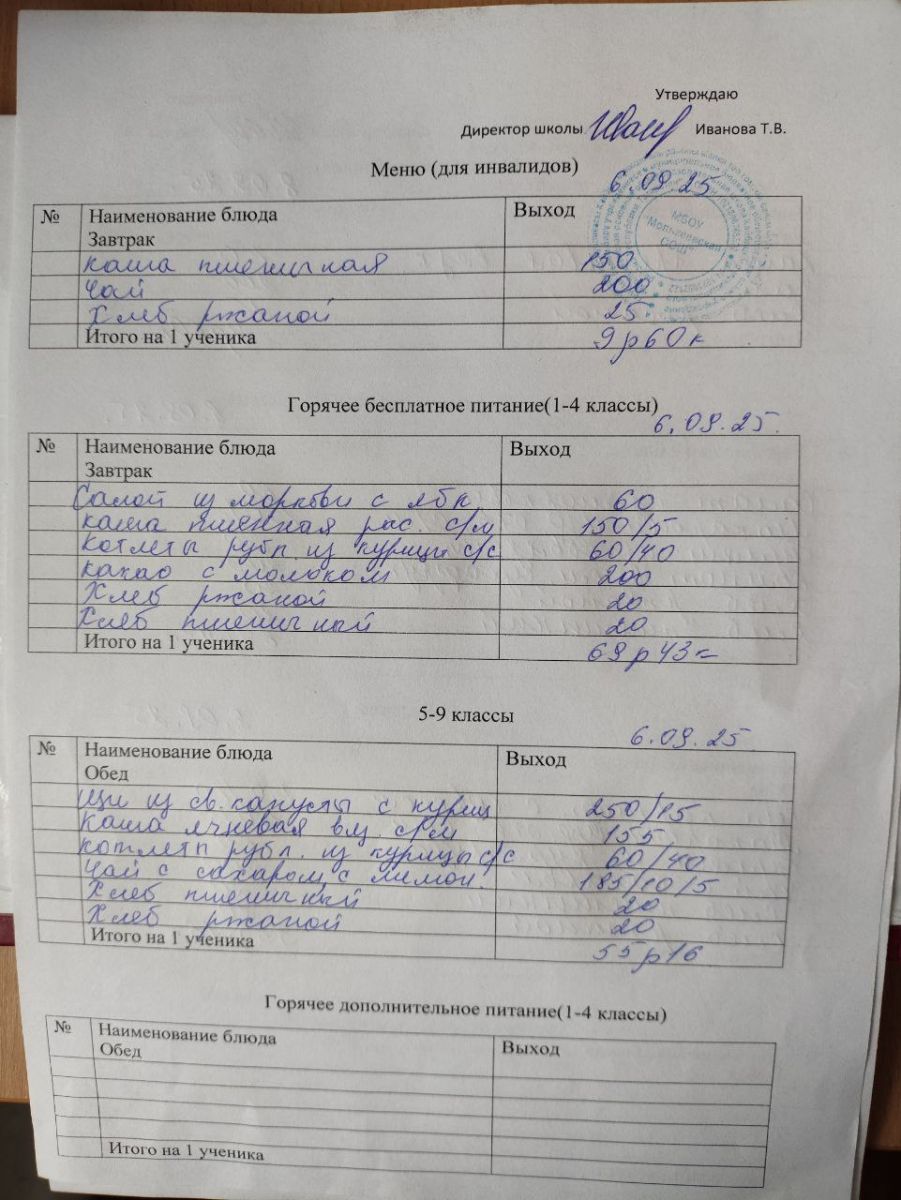 Утверждаю
Директор школы Иванова Т.В.
Меню (для инвалидов)
6.09.25
№ Наименование блюда Выход
Завтрак
каша пшеничная 150
чай 200
Хлеб ржаной 25
Итого на 1 ученика 9р60к
МБОУ
СОШ
Горячее бесплатное питание(1-4 классы)
6.09.25.
№ Наименование блюда Выход
Завтрак
Салат из моркови с ябл 60
каша пшенная рас с/м 150/5
котлеты рубл из курицы с/с 60/40
какао с молоком 200
Хлеб ржаной 20
Хлеб пшеничный 20
Итого на 1 ученика 69р43к
5-9 классы
6.09.25.
№ Наименование блюда Выход
Обед
Щи из св.капусты с куриц 250/15
Каша ячневая вяз с/м 155
котлеты рубл. из курицы с/с 60/40
Чай с сахаром с лимон. 185/10/5
Хлеб пшеничный 20
Хлеб ржаной 20
Итого на 1 ученика 55р16
Горячее дополнительное питание(1-4 классы)
№ Наименование блюда Выход
Обед
Итого на 1 ученика